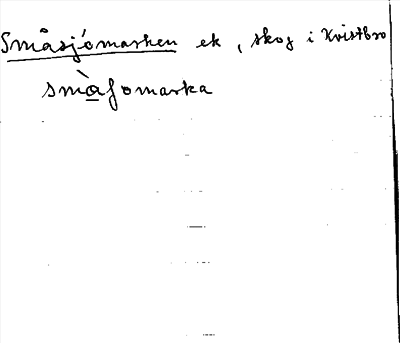 Småsjömarken ek, skog i Kvistbro
smàʃomarka